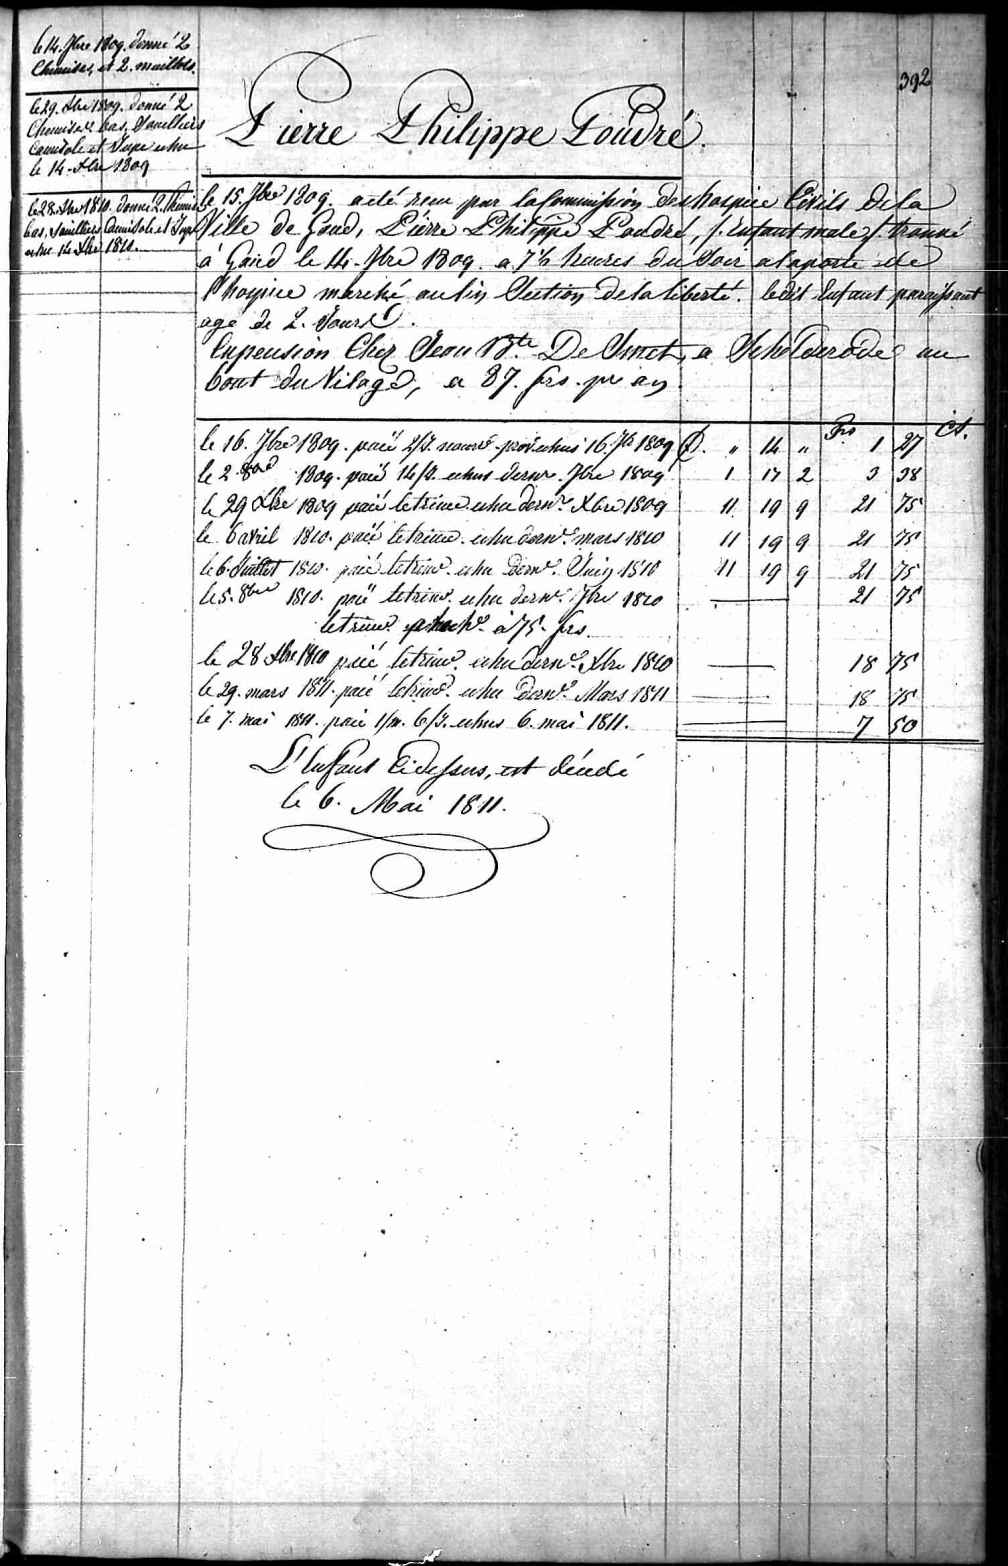 392
le 14. 7bre 1809. donné 2
Chemises, et 2. maillots.
le 29. Xbre 1809. donné 2
Chemises bas, Souilliers
Camisole et Jupe echu
le 14. Xbre 1809
le 28 Xbre 1810. donné 2. Chemis
bas, Souilliers Camisole et Jupe
echu 14 Xbre 1810.
Pierre Philippe Poudré.
le 15. 7bre 1809. a été recu par la Commission des hospice Civils de la
Ville de Gand, Pierre Philippe Poudré, /. Enfant male /. trouvé
à Gand le 14. 7bre 1809. a 7½ heures du Soir a la porte de
l'hospice marché au lin Section de la liberté. ledit Enfant paraissant
age de 2. Jours.
Enpension Chez Jean Bte De Smet, a au
bout du Vilage, a 87. frs. pr an
Frs Cs.
le 16. 7bre 1809. paié 2/J. echus 16. 7br 1809 £. " 14 " 1 27
le 2. 8bre 1809. paié 14/J. echus dernr. 7bre 1809 1 17 2 3 38
le 29 Xbre 1809 paié le trime. echu dernr. Xbre 1809 11 19 9 21 75
le 6 avril 1810. paié le trime. echu dernr. mars 1810 11 19 9 21 75
le 6. Juillet 1810. paié le trime. echu dernr. Juin 1810 11 19 9 21 75
le 5. 8bre 1810. paié le trime. echu dernr. 7bre 1810 21 75
le trime. à 75. frs.
le 28 Xbre 1810 paié le trime. echu dernr. Xbre 1810 18 75
le 29. mars 1811. paié le trime. echu dernr. Mars 1811 18 75
le 7. mai 1811. paié 1/m. 6/J. echus 6. mai 1811. 7 50
L'Enfant Cidessus, est décédé
le 6. Mai 1811.